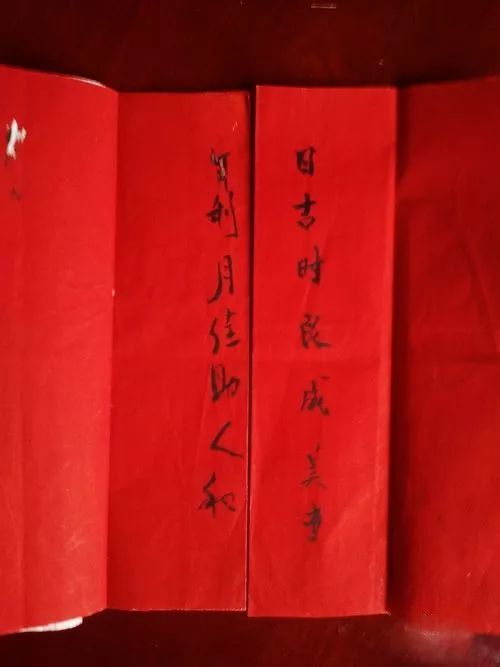 日吉时良成美事
年利月佳助人和